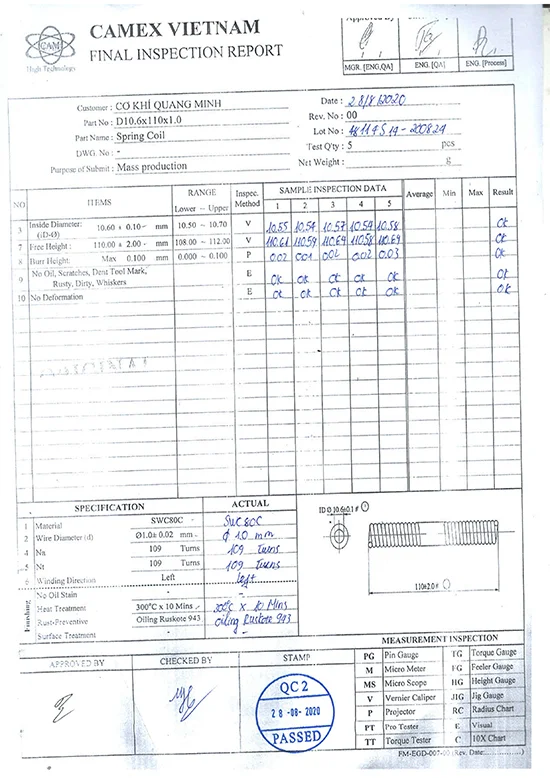 CAMEX VIETNAM
FINAL INSPECTION REPORT
CAM
High Technology
Approved By
MGR. [ENG,QA] ENG. [QA] ENG. [Procem]
Customer : CƠ KHÍ QUANG MINH
Part No : D10.6x110x1.0
Part Name : Spring Coil
DWG. No : -
Purpose of Submit : Mass production
Date : 28/8/2020
Rev. No : 00
Lot No :
Test Q'ty : 5 pcs
Net Weight : g
NO ITEMS RANGE Lower ~ Upper Inspec. Method SAMPLE INSPECTION DATA 1 2 3 4 5 Average Min Max Result
3 Inside Diameter: (ID-Ø) 10.60 ± 0.10 mm 10.50 ~ 10.70 V 10.55 10.54 10.57 10.54 10.58 Ok
7 Free Height: 110.00 ± 2.00 mm 108.00 ~ 112.00 V 110.61 110.59 110.69 110.58 110.69 Ok
8 Burr Height: Max 0.100 mm 0.000 ~ 0.100 P 0.02 0.01 0.02 0.02 0.03 Ok
9 No Oil, Scratches, Dent Tool Mark, Rusty, Dirty, Whiskers E Ok Ok Ok Ok Ok Ok
10 No Deformation E Ok Ok Ok Ok Ok Ok
SPECIFICATION ACTUAL
1 Material SWC80C SWC 80C
2 Wire Diameter (d) Ø1.0± 0.02 mm Ø 1.0 mm
4 Na 109 Turns 109 turns
5 Nt 109 Turns 109 turns
6 Winding Direction Left left
Finishing
No Oil Stain - -
Heat Treatment 300°C x 10 Mins 300°C x 10 Mins
Rust-Preventive Oiling Ruskote 943 oiling Ruskote 943
Surface Treatment - -
ID Ø 10.6±0.1 #
110±2.0 #
APPROVED BY CHECKED BY STAMP
QC 2
28-08-2020
PASSED
MEASUREMENT INSPECTION
PG Pin Gauge TG Torque Gauge
M Micro Meter FG Feeler Gauge
MS Micro Scope HG Height Gauge
V Vernier Caliper JIG Jig Gauge
P Projector RC Radius Chart
PT Pro Tester E Visual
TT Torque Tester C 10X Chart
FM-EGD-007-00 (Rev. Date:..................)